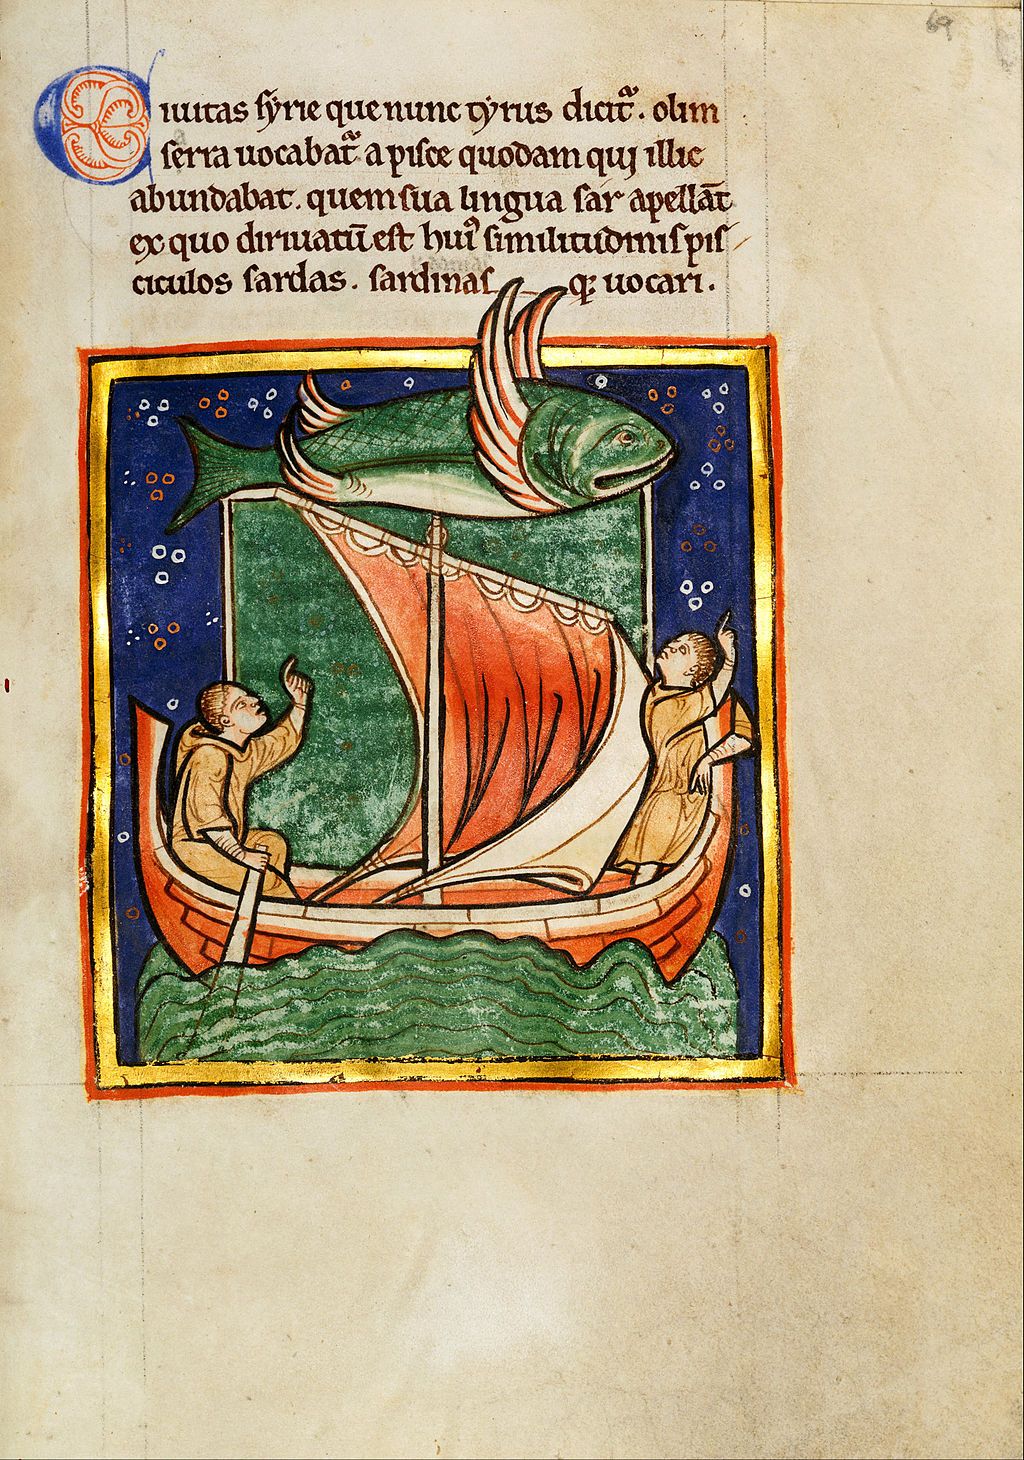 69
Ciuitas syrie que nunc tyrus dicit᷑. olim
serra uocabat᷑ a pisce quodam qui illic
abundabat. quem sua lingua sar apellāt
ex quo diriuatū est hui᷒ similitudinis pis
ciculos sardas. sardinas qꝫ uocari.